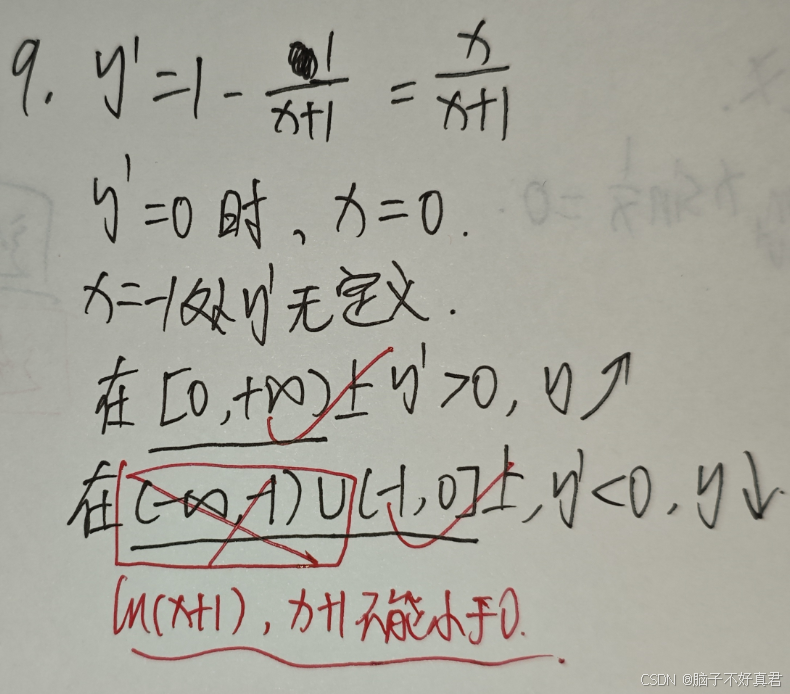 9. y' = 1 - 1/(x+1) = x/(x+1)
y'=0 时、x=0.
x=-1处y'无定义.
在 [0,+∞) 上 y'>0, y↗
在 (-∞,-1)∪(-1,0] 上, y'<0, y↓
ln(x+1), x+1不能小于0.
CSDN @脑子不好真君